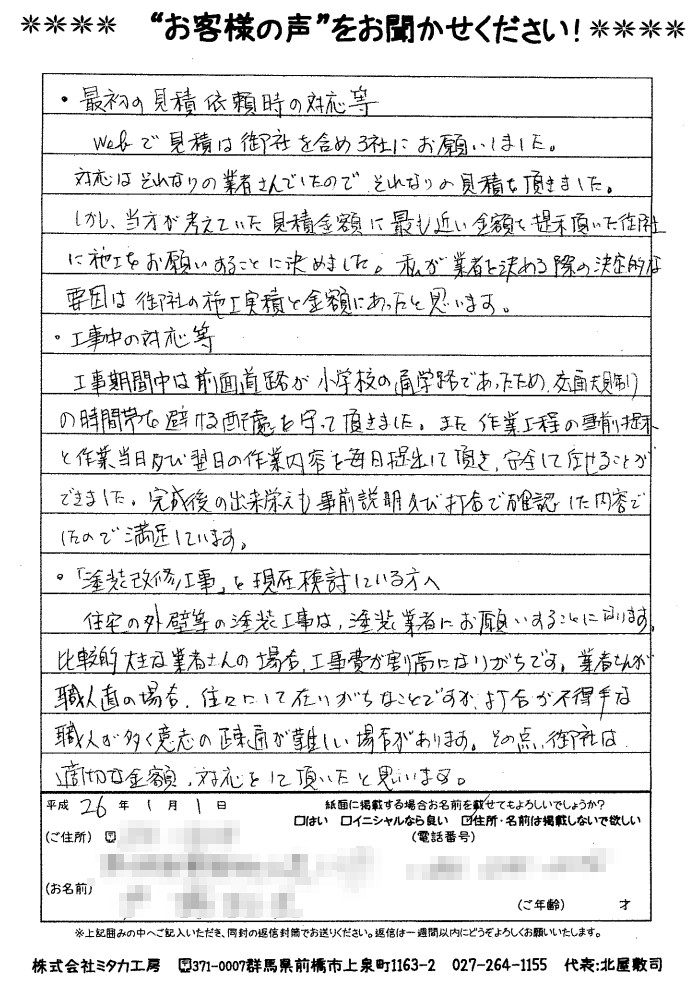 **** “お客様の声”をお聞かせください！****
・最初の見積依頼時の対応等
Webで見積は御社を含め3社にお願いしました。
対応はそれなりの業者さんでしたので、それなりの見積を頂きました。
しかし、当方が考えていた見積金額に最も近い金額を提示頂いた御社
に施工をお願いすることに決めました。私が業者を決める際の決定的な
要因は御社の施工実績と金額にあったと思います。
・工事中の対応等
工事期間中は前面道路が小学校の通学路であったため、交通規制
の時間帯を避ける配慮を守って頂きました。また作業工程の事前提示
と作業当日及び翌日の作業内容を毎日提出して頂き、安全して任せることが
できました。完成後の出来栄えも事前説明及び打合で確認した内容で
したので満足しています。
・「塗装改修工事」を現在検討している方へ
住宅の外壁等の塗装工事は、塗装業者にお願いすることになります。
比較的大きな業者さんの場合、工事費が割高になりがちです。業者さんが
職人直の場合、往々にして在りがちなことですが、打合が不得手な
職人が多く意志の疎通が難しい場合があります。その点、御社は
適切な金額、対応をして頂いたと思います。
平成 26 年 1 月 1 日 紙面に掲載する場合お名前を載せてもよろしいでしょうか？
□はい □イニシャルなら良い ☑住所・名前は掲載しないで欲しい
(ご住所) 〒 (電話番号)
(お名前)
(ご年齢) 才
※上記囲みの中へご記入いただき、同封の返信封筒でお送りください。返信は一週間以内にどうぞよろしくお願いいたします。
株式会社ミタカ工房 〒371-0007群馬県前橋市上泉町1163-2 027-264-1155 代表:北屋敷司